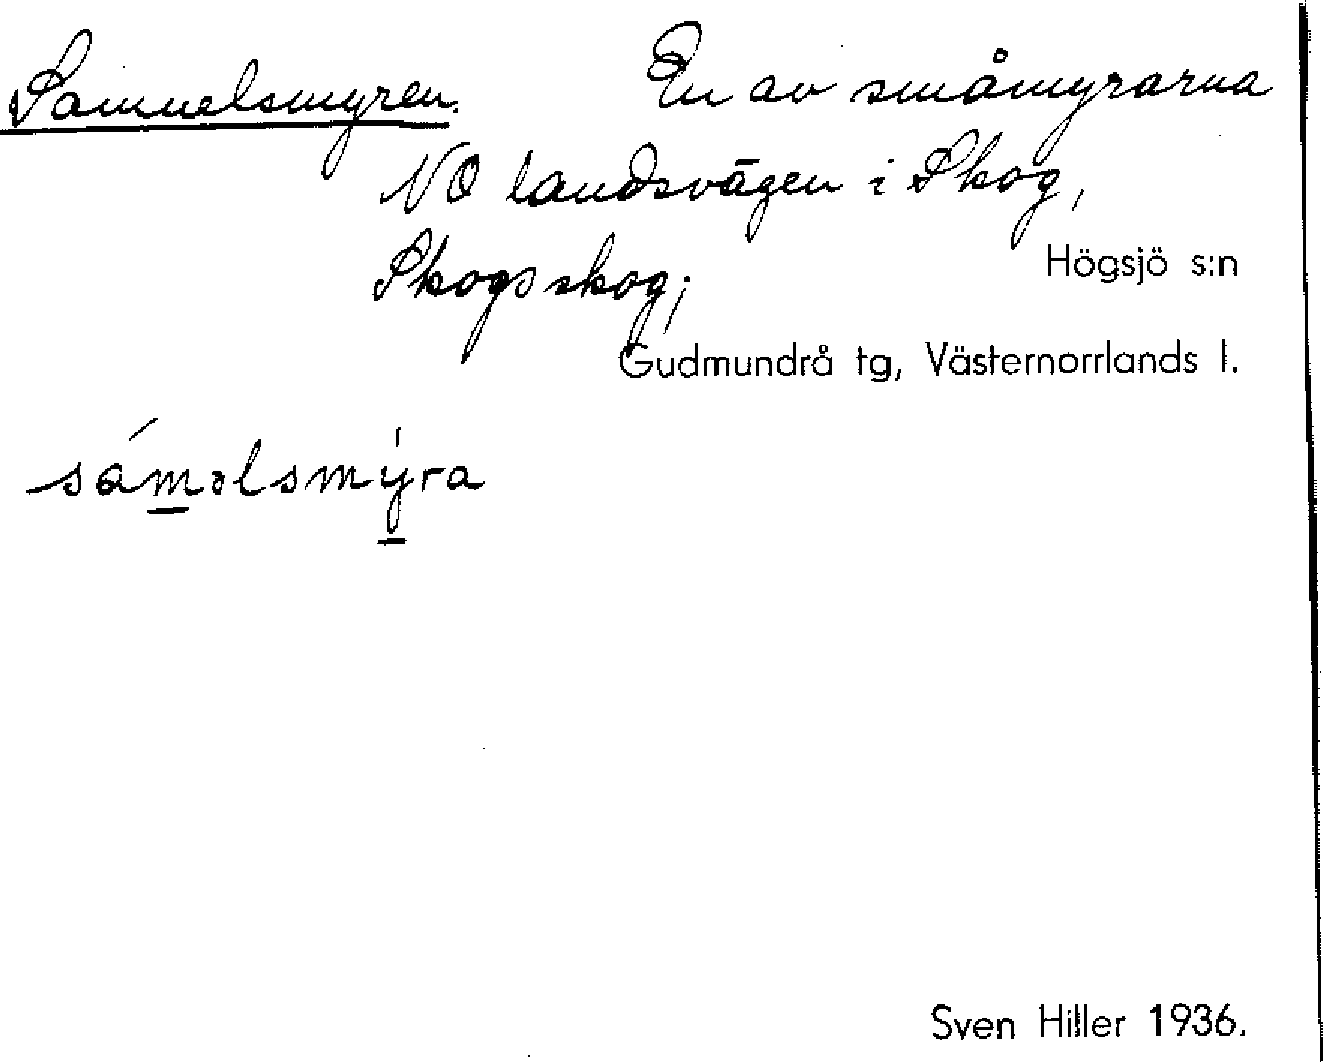 Samuelsmyren. En av småmyrarna
NO landsvägen i Skog,
Högsjö s:n
Skogs skog;
Gudmundrå tg, Västernorrlands l.
sáməlsmy̍ra
Sven Hiller 1936.